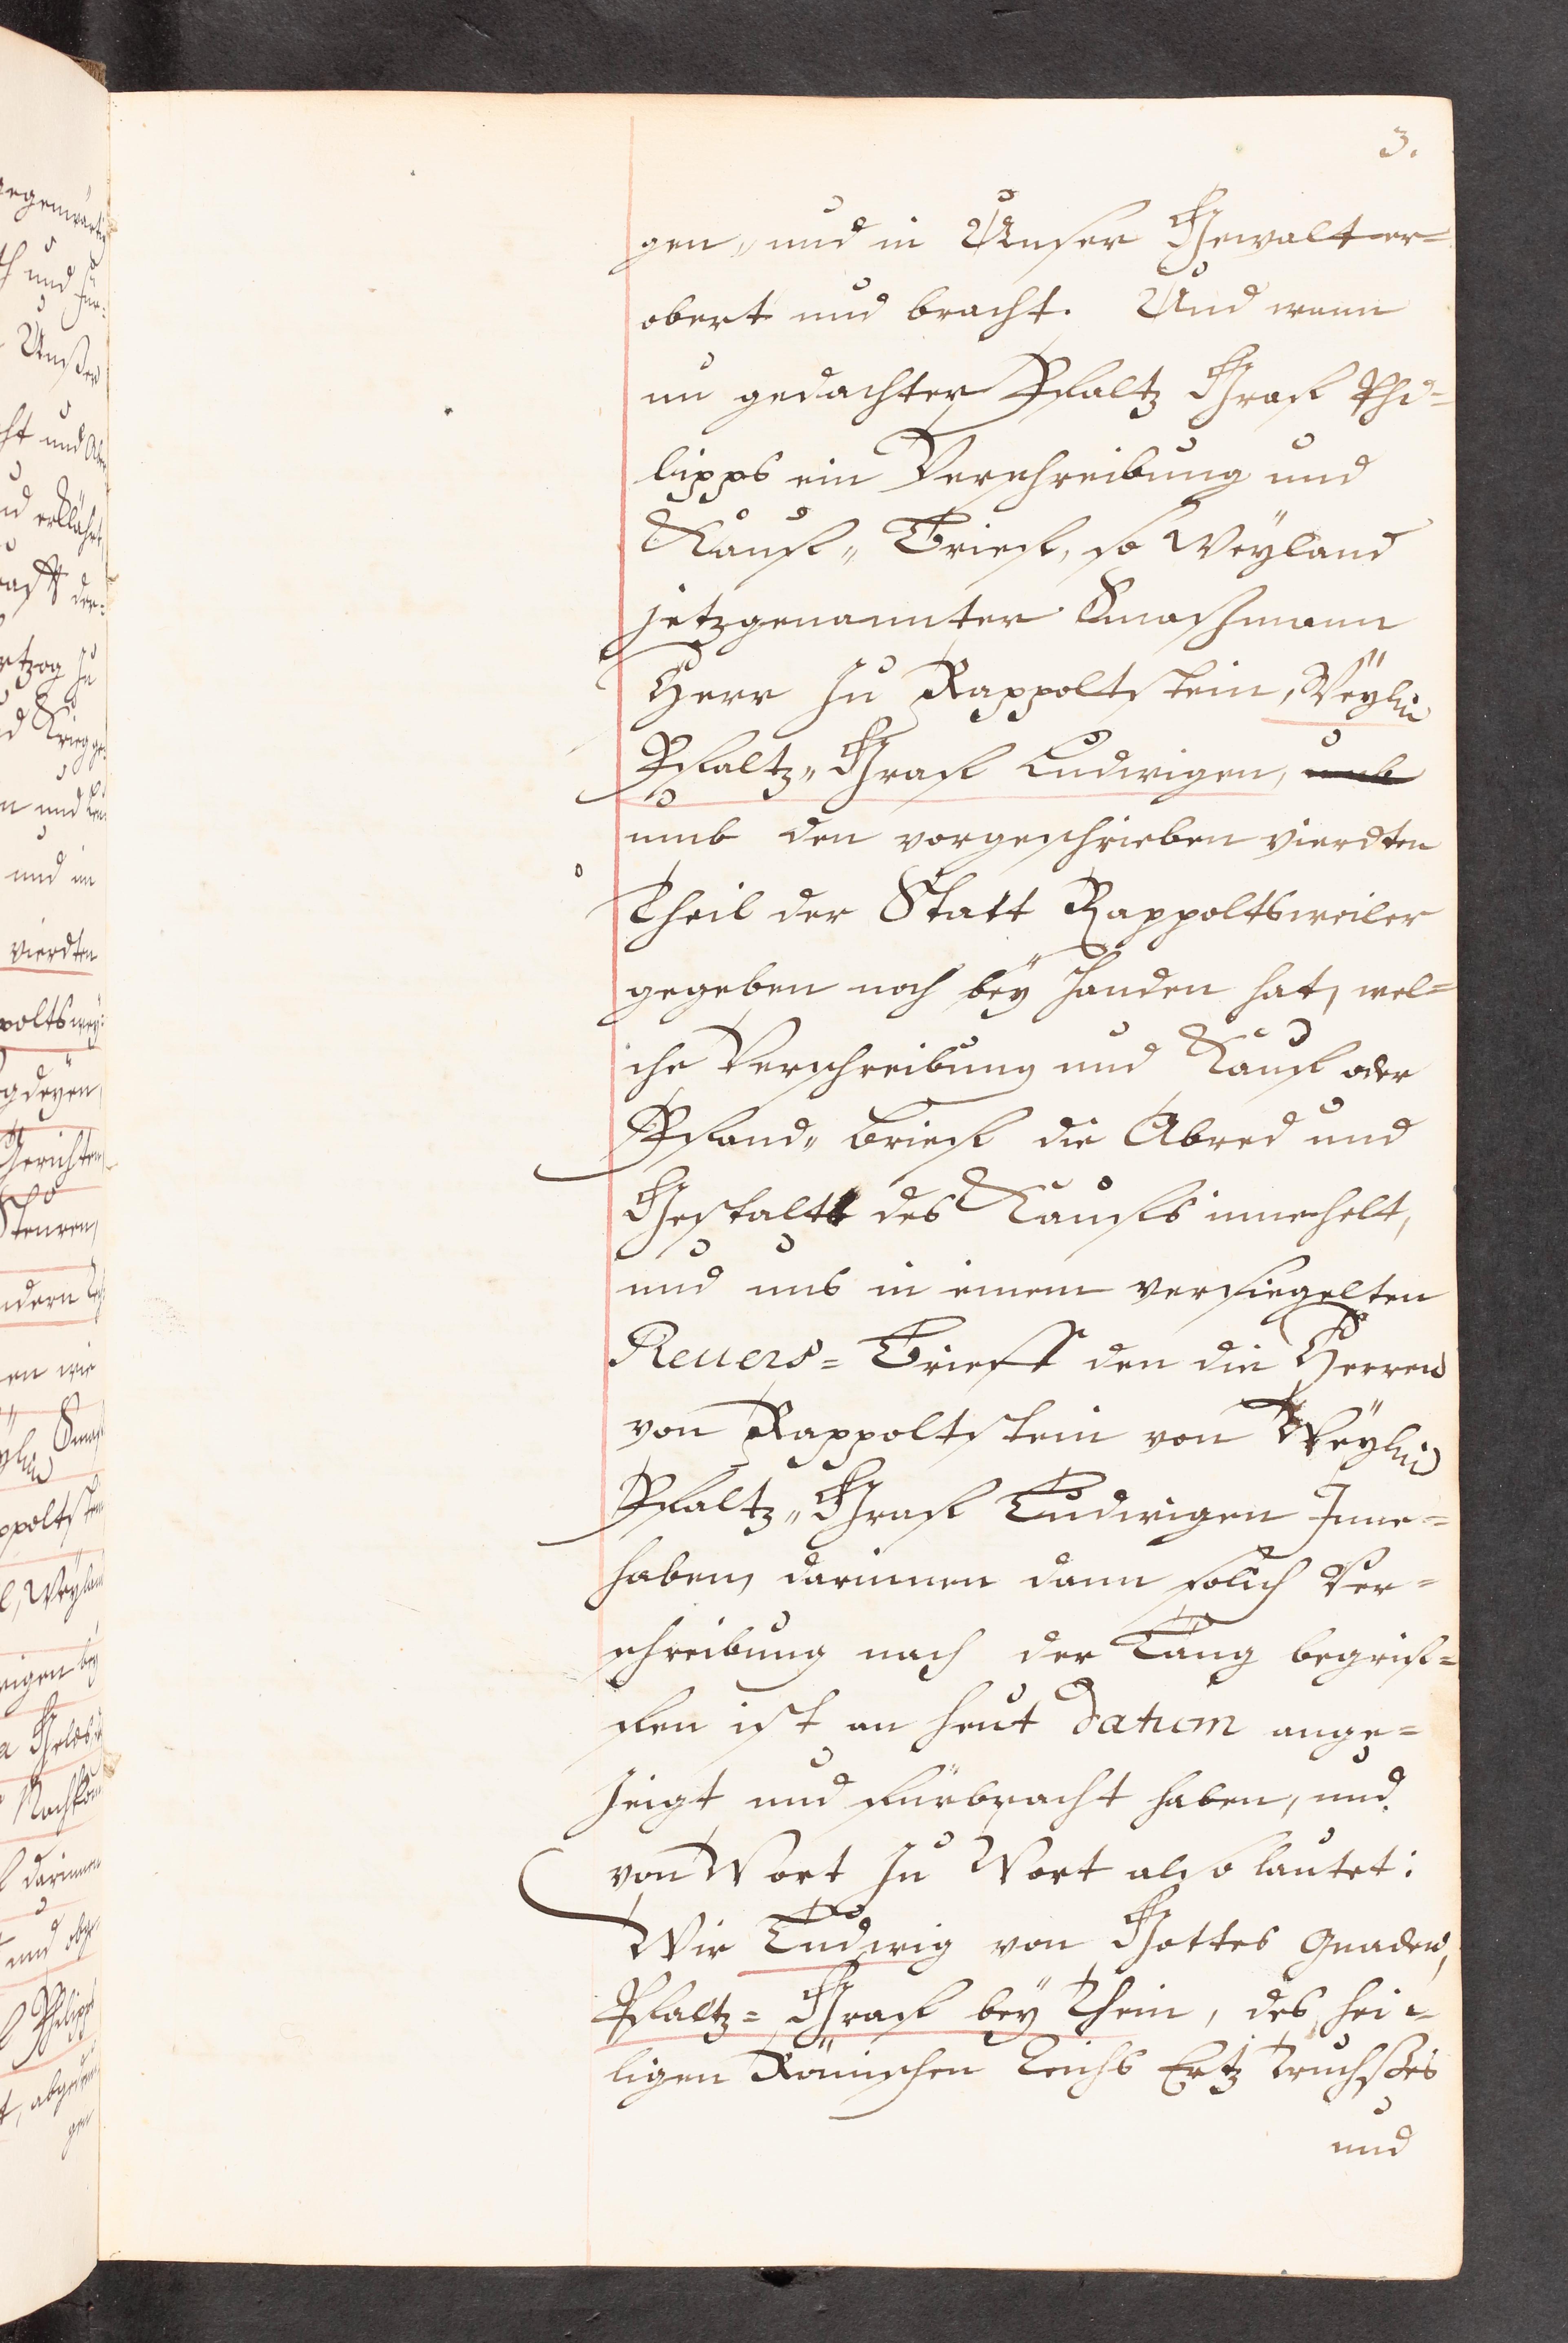 3.
gen, und in Unser Gewalt er=
obert und bracht. Und wann
nu gedachter Pfaltz Graff Phi=
lipps ein Verschreibung und
Kauff„ Brieff, so Weyland
jetzgenannter Smaßmann
Herr zu Rappoltstein, Weylen
Pfaltz„ Graff Ludwigen, umb
umb den vorgeschrieben vierdten
Theil der Statt Rappoltsweiler
gegeben noch beÿ Handen hat, wel=
che Verschreibung und Kauff oder
Pfand„ brieff die Abred und
Gestalt des Kauffs innehelt,
und uns in einem versiegelten
Revers= Brieff den die Herren
von Rappoltstein von Weÿlen
Pfaltz„ Graff Ludwigen Inne=
haben, darinnen dann solich Ver=
schreibung nach der Läng begrif=
fen ist an heut datum ange=
zeigt und fürbracht haben, und
von Wort zu Wort also lautet:
Wir Ludwig von Gottes Gnaden,
Pfaltz= Graff beÿ Rhein, des hei=
ligen Römischen Reichs Ertz Truchsses
und